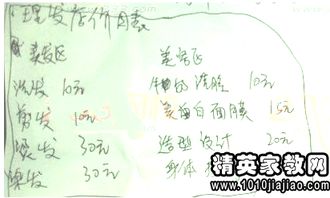 理发店价目表
美发区
美容区
洗发 10元
牛奶洗脸 10元
剪发 10元
美白面膜 15元
烫发 30元
造型设计 20元
染发 30元
身体
精英家教网
http://www.1010jiajiao.com